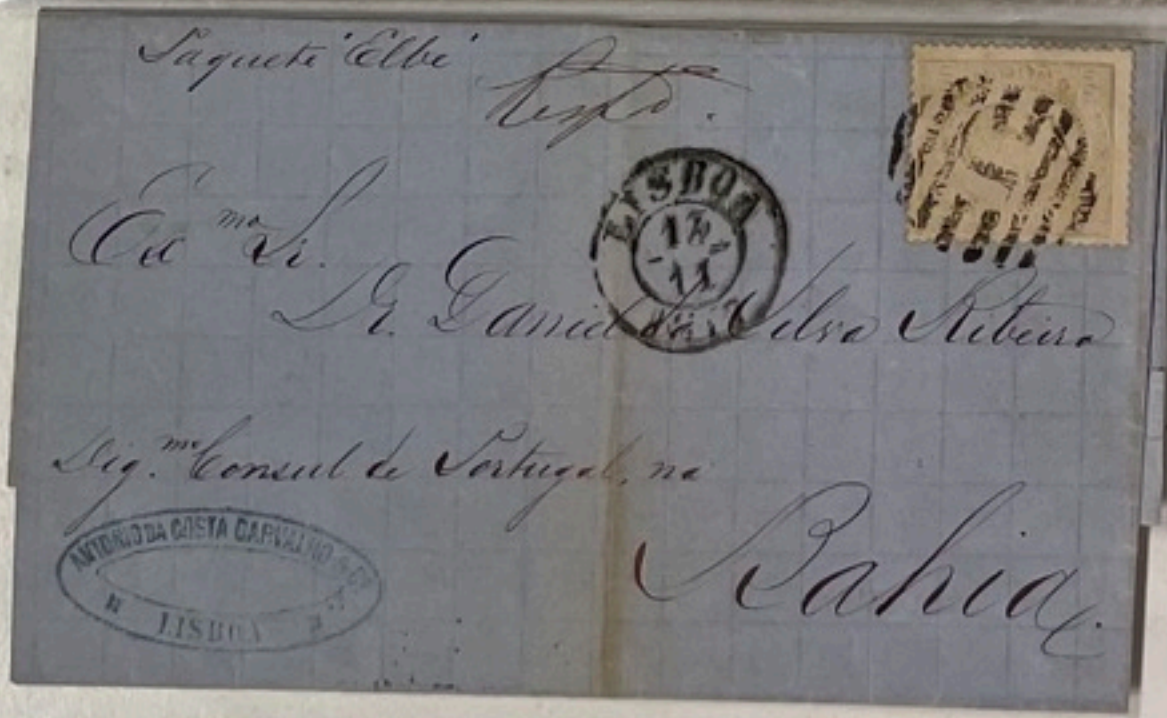 Paquete "Elbe"
Resp.do
Ex mo Sr.
Dr. Daniel da Silva Ribeiro
Dig.mo Consul de Portugal, na
Bahia
LISBOA
11
1
ANTONIO DA COSTA CARVALHO & Ca
LISBOA